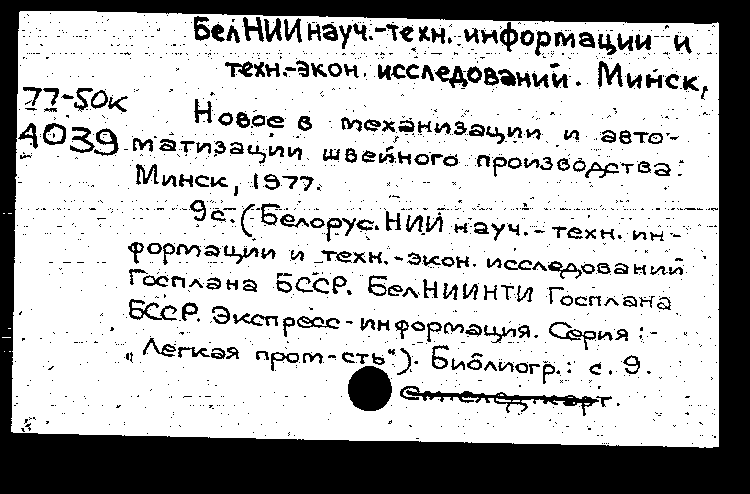 БелНИИ науч.-техн. информации и
техн.-экон. исследований. Минск,
77-50к
4039
Новое в механизации и авто-
матизации швейного производства.
Минск, 1977.
9с. (Белорус. НИИ науч.-техн. ин-
формации и техн.-экон. исследований
Госплана БССР. БелНИИНТИ Госплана
БССР. Экспресс-информация. Серия:-
„Легкая пром-сть"). Библиогр.: с. 9.
см. след. карт.